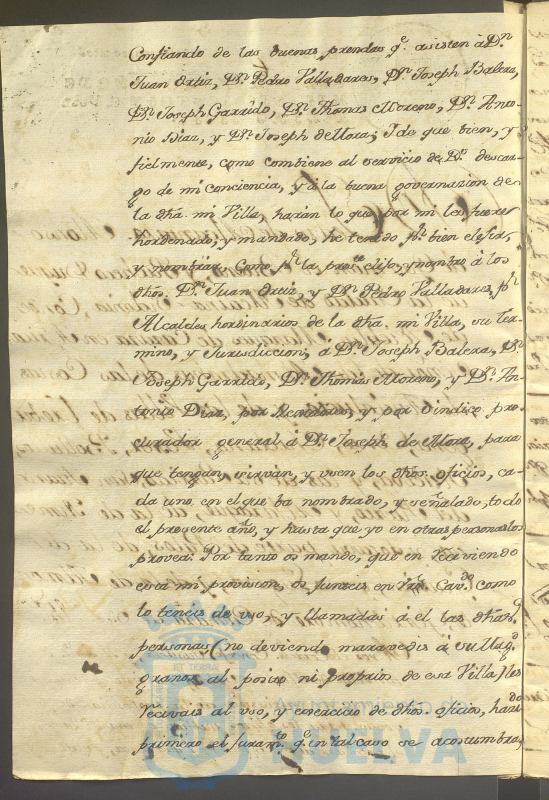 Confiando de las buenas prendas q.e asisten à D.n
Juan Ortiz, D.n Pedro Valladares, D.n Joseph Balera,
D.n Joseph Garrido, D.n Thomas Moreno, D.n Anto-
nio Diaz, y D.n Joseph de Mora; y de que bien, y
fielmente, como combiene al servicio de D.s descar-
go de mi conciencia, y à la buena governazion de
la dha. mi Villa, harán lo que por mi les fuere
hordenado, y mandado, he tenido p.r bien elexir,
y nombrar, como p.r la pres.te elijo, y nombro à los
dhos. D.n Juan Ortiz, y D.n Pedro Valladares, p.r
Alcaldes hordinarios de la dha. mi Villa, su ter-
mino, y Jurisdiccion; à D.n Joseph Balera, D.n
Joseph Garrido, D.n Thomas Moreno, y D.n An-
tonio Diaz, por Rexidores, y por Sindico pro-
curador general à D.n Joseph de Mora, para
que tengan, sirvan, y usen los dhos. oficios, ca-
da uno en el que ba nombrado, y señalado, todo
el presente año, y hasta que yo en otras personas los
provea: Por tanto os mando, que en Reciviendo
esta mi provision, os junteis en Vro. Cav.do como
lo teneis de uso, y llamadas à el las dhas.
personas (no deviendo maravedis à su Mag.d
granos al posito ni proprios de esa Villa) les
Recivais al uso, y exercicio de dhos. oficios, haz.do
primero el juram.to q.e en tal caso se acostumbra,
ET TERRÆ
HUELVA